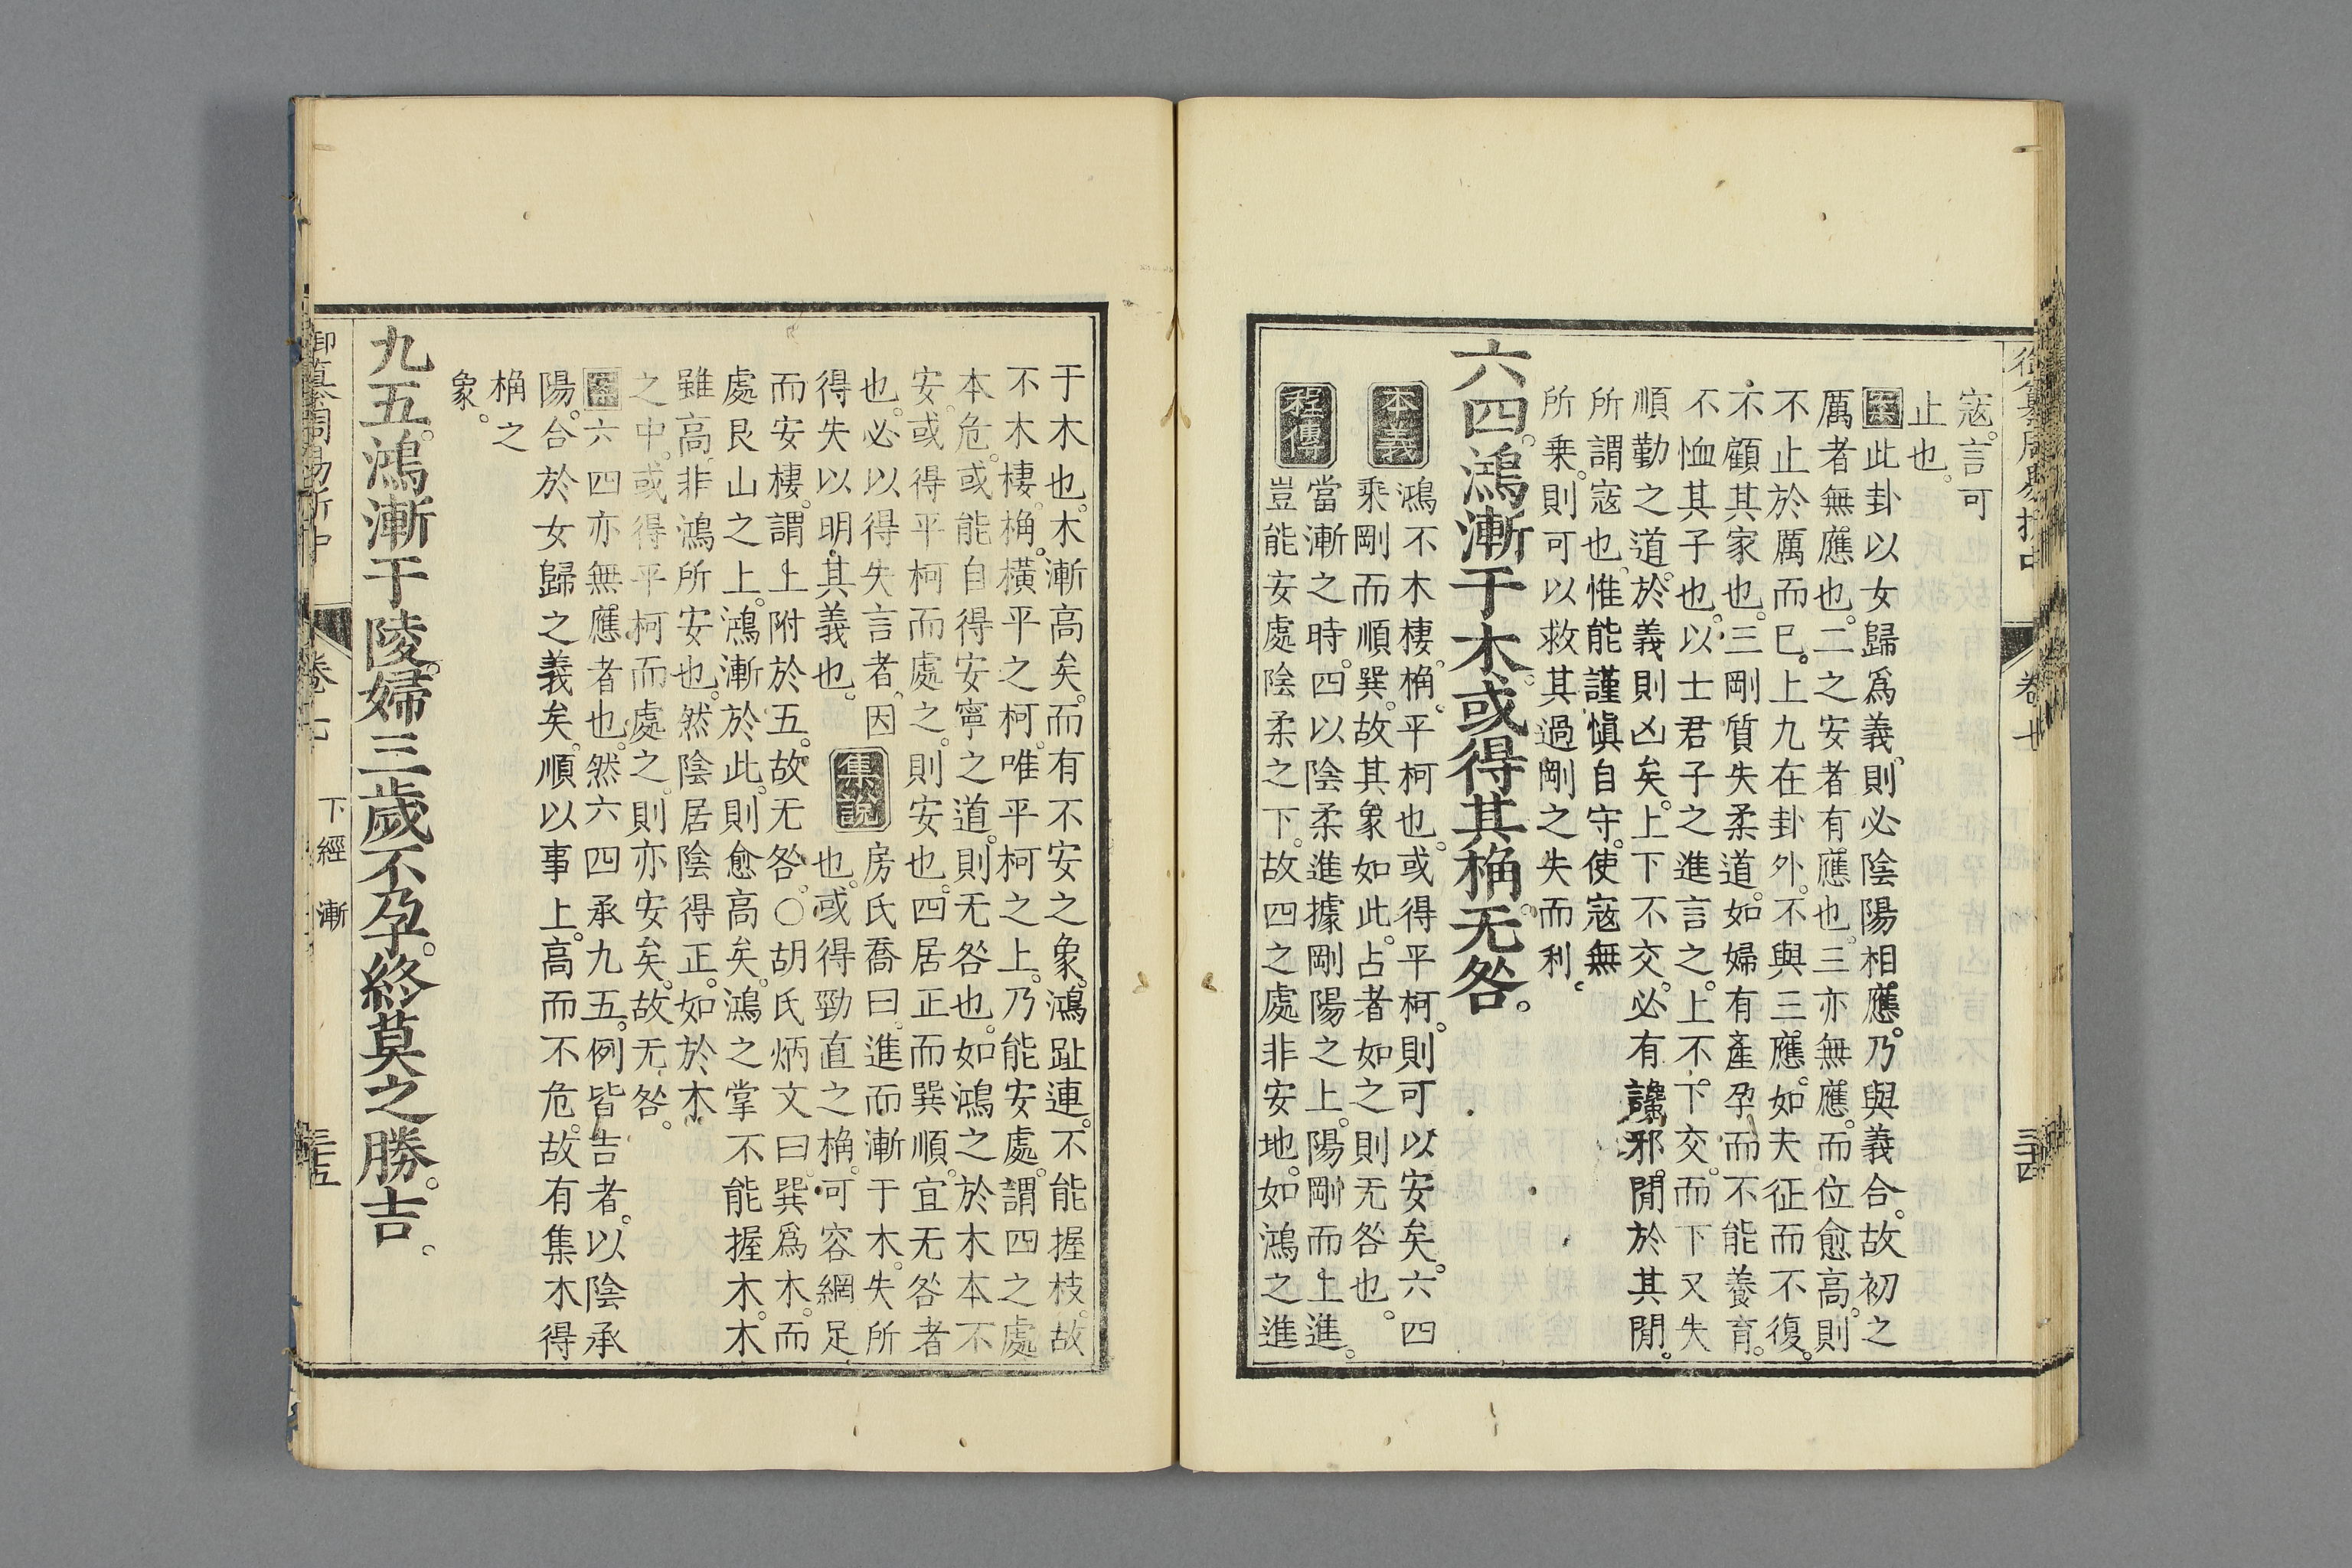 御纂周易折中 卷七 三四
寇。言可
止也。
案此卦以女歸爲義。則必陰陽相應。乃與義合。故初之
厲者無應也。二之安者有應也。三亦無應。而位愈高。則
不止於厲而已。上九在卦外。不與三應。如夫征而不復。
不顧其家也。三剛質失柔道。如婦有產孕而不能養育。
不恤其子也。以士君子之進言之。上不下交。而下又失
順勤之道。於義則凶矣。上下不交。必有讒邪閒於其閒。
所謂寇也。惟能謹慎自守。使寇無
所乗。則可以救其過剛之失而利。
六四。鴻漸于木。或得其桷。无咎。
本義
鴻不木棲。桷。平柯也。或得平柯。則可以安矣。六四
乘剛而順巽。故其象如此。占者如之。則无咎也。
程傳
當漸之時。四以陰柔進據剛陽之上。陽剛而上進。
豈能安處陰柔之下。故四之處非安地。如鴻之進
于木也。木漸高矣。而有不安之象。鴻趾連。不能握枝。故
不木棲。桷。橫平之柯。唯平柯之上。乃能安處。謂四之處
本危。或能自得安寧之道。則无咎也。如鴻之於木本不
安。或得平柯而處之。則安也。四居正而巽順。宜无咎者
也。必以得失言者。因
得失以明其義也。
集說
房氏喬曰。進而漸于木。失所
也。或得勁直之桷。可容網足
而安棲。謂上附於五。故无咎。○胡氏炳文曰。巽爲木。而
處艮山之上。鴻漸於此。則愈高矣。鴻之掌不能握木。木
雖高。非鴻所安也。然陰居陰得正。如於木
之中。或得平柯而處之。則亦安矣。故无咎。
案六四亦無應者也。然六四承九五。例皆吉者。以陰承
陽。合於女歸之義矣。順以事上。高而不危。故有集木得
桷之
象。
九五。鴻漸于陵。婦三歲不孕。終莫之勝。吉。
御纂周易折中 卷七 下經 漸 三五